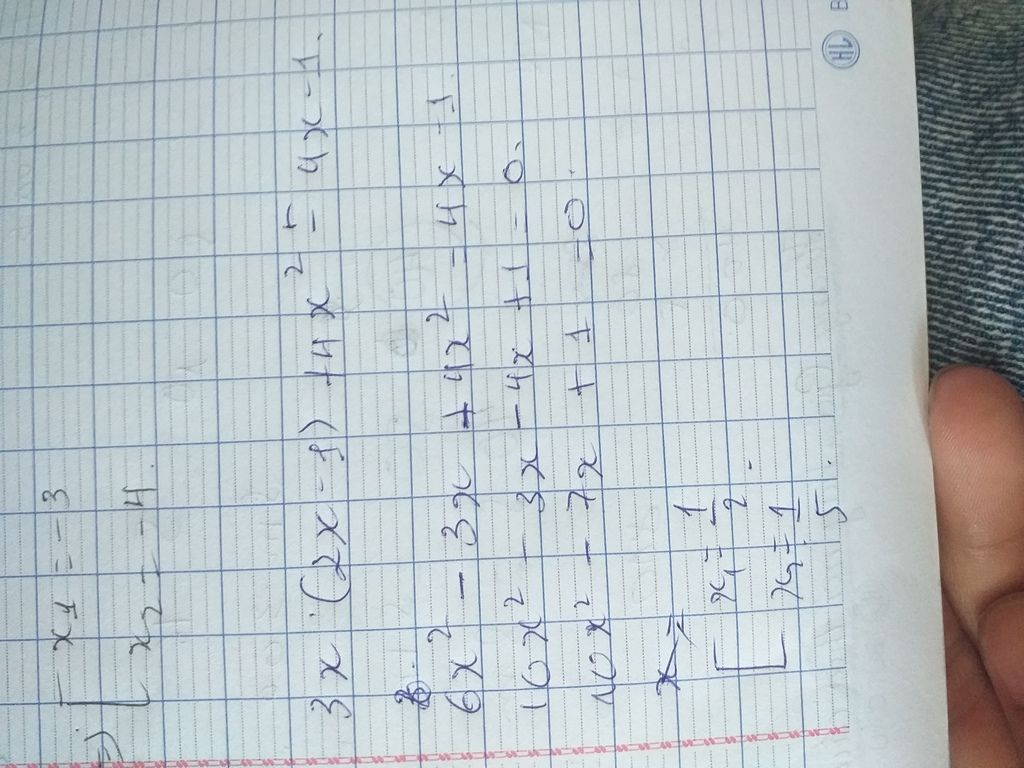 x₁ = -3
=) x₂ = -4.
3x · (2x - 1) + 4x² = 4x - 1.
6x² - 3x + 4x² = 4x - 1.
10x² - 3x - 4x + 1 = 0.
10x² - 7x + 1 = 0.
x₁ = 1/2.
x₂ = 1/5.